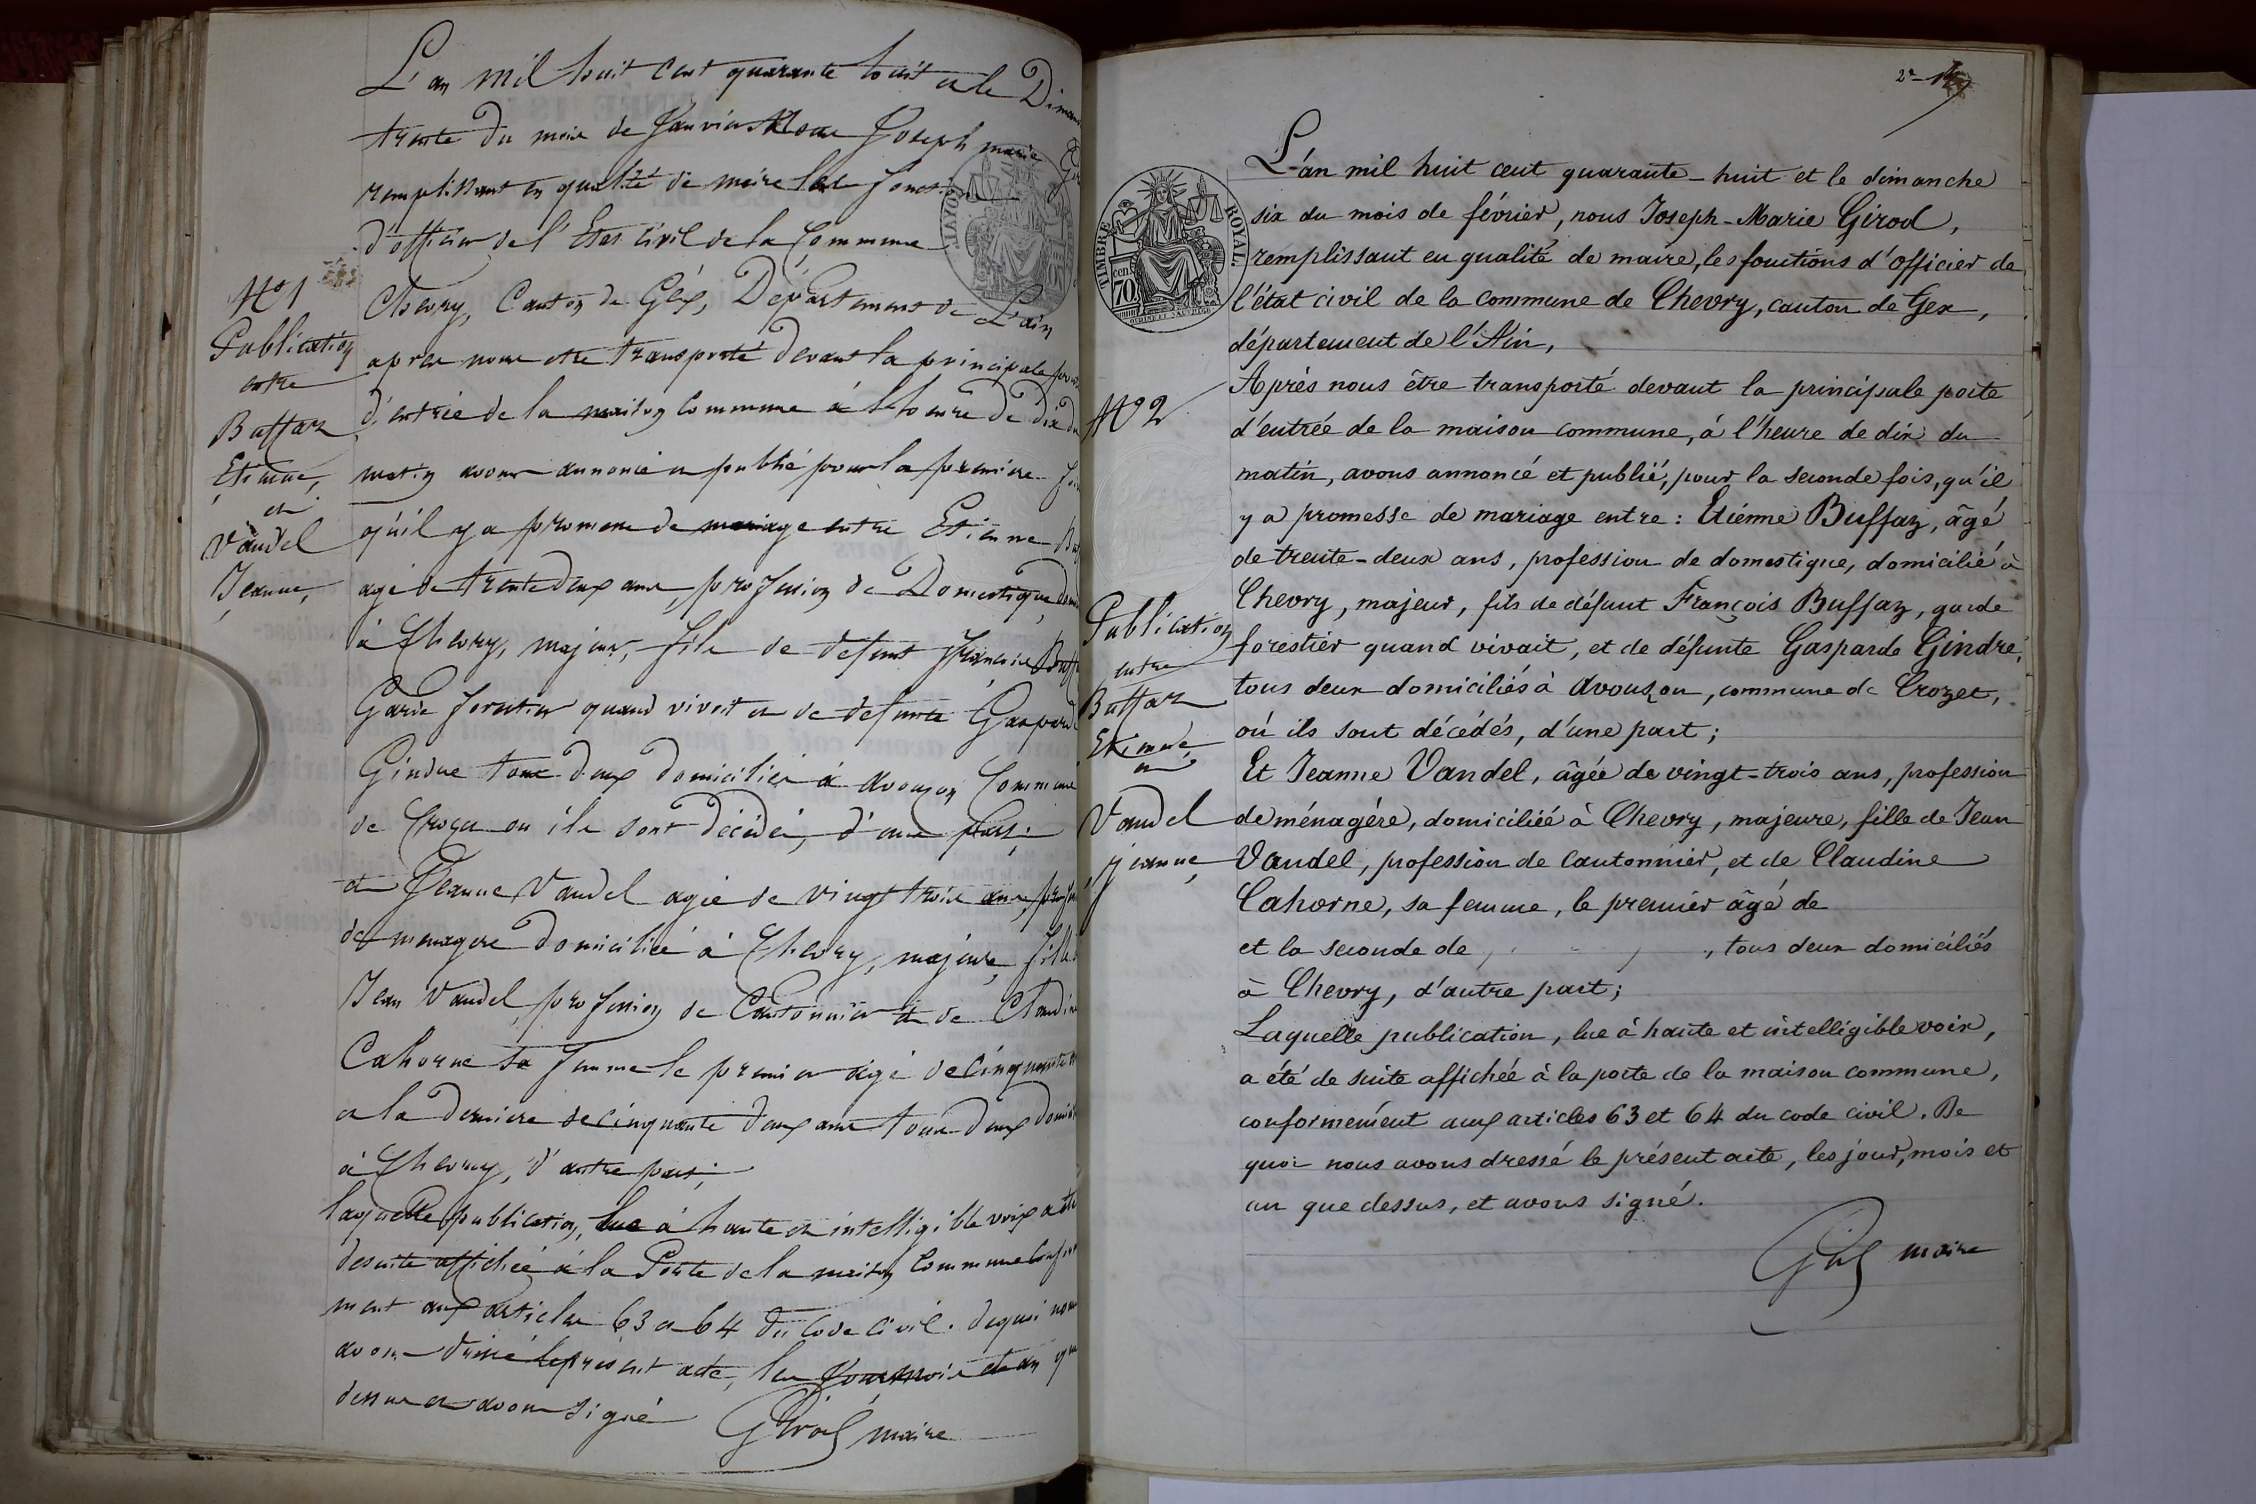 L'an mil huit cent quarante huit et le Diman
trente du mois de Janvier Nous Joseph marie Gir
remplissant en qualité de maire les fonctio
d'officier de l'Etat civil de la Commune
Chevry, Canton de Géx, Département de L'ain
apres nous etre transporté devant la principale por
d'entrée de la maison commune à l'heure de dix du
matin avons annoncé et publié pour la premiere foi
qu'il y a promesse de mariage entre Etienne Buf
agé de trente deux ans, profession de Domestique, domi
à Chevry, majeur, fils de defunt françois Buff
Garde forestier quand vivoit et de defunte Gasparde
Gindre tous deux domiciliés à avouson Commune
de Crozet ou ils sont décédés, d'une part;
et Jeanne Vandel agée de vingt trois ans, profe
de menagere domiciliée à Chevry, majeure, fille
Jean Vandel, profession de Cantonnier et de Claudin
Cahorne sa femme le premier agé de cinquante
et la derniere de cinquante deux ans tous deux domici
à Chevry, d'autre part;
laquelle publication, lue à haute et intelligible voix a été
de suite affichée à la Porte de la maison Commune Confor
ment aux articles 63 et 64 du Code Civil. de quoi nous
avons dressé le présent acte, les jour mois et an que
dessus et avons signé
Girod maire
N° 1
Publication
entre
Buffaz
Etienne,
et
Vandel
Jeanne,
2e
L'an mil huit cent quarante-huit et le dimanche
six du mois de février, nous Joseph-Marie Girod,
remplissant en qualité de maire, les fonctions d'officier de
l'état civil de la commune de Chevry, canton de Gex,
département de l'Ain,
Après nous être transporté devant la principale porte
d'entrée de la maison commune, à l'heure de dix du
matin, avons annoncé et publié, pour la seconde fois, qu'il
y a promesse de mariage entre : Etienne Buffaz, âgé
de trente-deux ans, profession de domestique, domicilié à
Chevry, majeur, fils de défunt François Buffaz, garde
forestier quand vivait, et de défunte Gasparde Gindre,
tous deux domiciliés à Avouzon, commune de Crozet,
où ils sont décédés, d'une part;
Et Jeanne Vandel, âgée de vingt-trois ans, profession
de ménagère, domiciliée à Chevry, majeure, fille de Jean
Vandel, profession de cantonnier, et de Claudine
Cahorne, sa femme, le premier âgé de
et la seconde de , tous deux domiciliés
à Chevry, d'autre part;
Laquelle publication, lue à haute et intelligible voix,
a été de suite affichée à la porte de la maison commune,
conformément aux articles 63 et 64 du code civil. De
quoi nous avons dressé le présent acte, les jour, mois et
an que dessus, et avons signé.
Girod maire
N° 2
Publication
entre
Buffaz
Etienne,
et
Vandel
Jeanne,
TIMBRE ROYAL
cen. 70